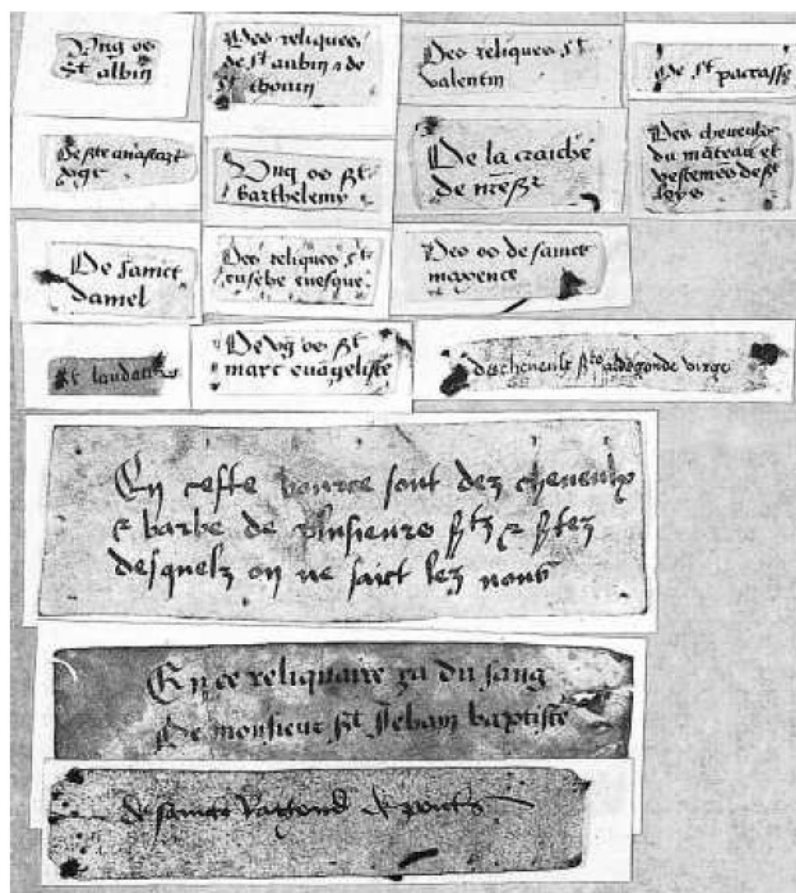 Ung os
St albin
Des reliques
de st aubin & de
st thouin
Des reliques st
valentin
De st pacrasse
De ste anastaze
vgr
Ung os st
barthelemy
De la craiche
de nre sr
Des cheveulx
du mãteau et
vestemẽs de st
loys
De sainct
daniel
Des reliques st
eusebe evesque
Des os de sainct
maxence
st laudent
De vg os st
marc euãgeliste
des cheveulx ste aldegonde virge
En ceste bource sont dez cheveulx
& barbe de plusieurs stz & stez
desquelz on ne sait lez noms
En ce reliquaire ya du sang
De monsieur st Jehan baptiste
de saincte